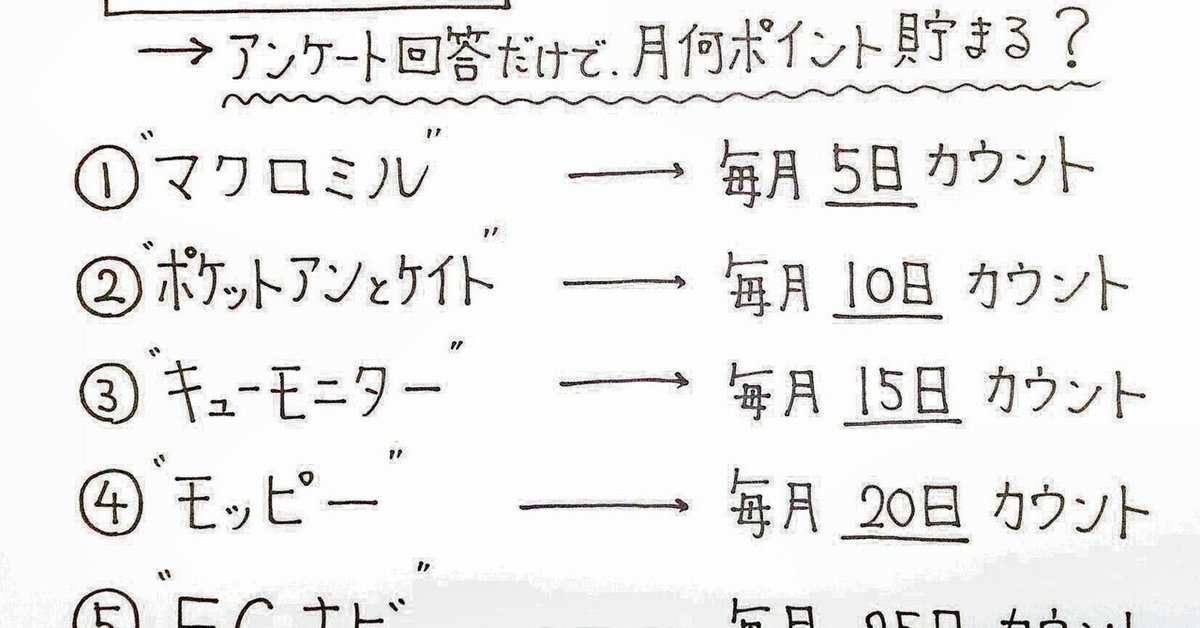 →アンケート回答だけで、月何ポイント貯まる？
① "マクロミル" → 毎月 5日 カウント
② "ポケットアンとケイト" → 毎月 10日 カウント
③ "キューモニター" → 毎月 15日 カウント
④ "モッピー" → 毎月 20日 カウント
⑤ "ECナビ" 毎月 25日 カウント